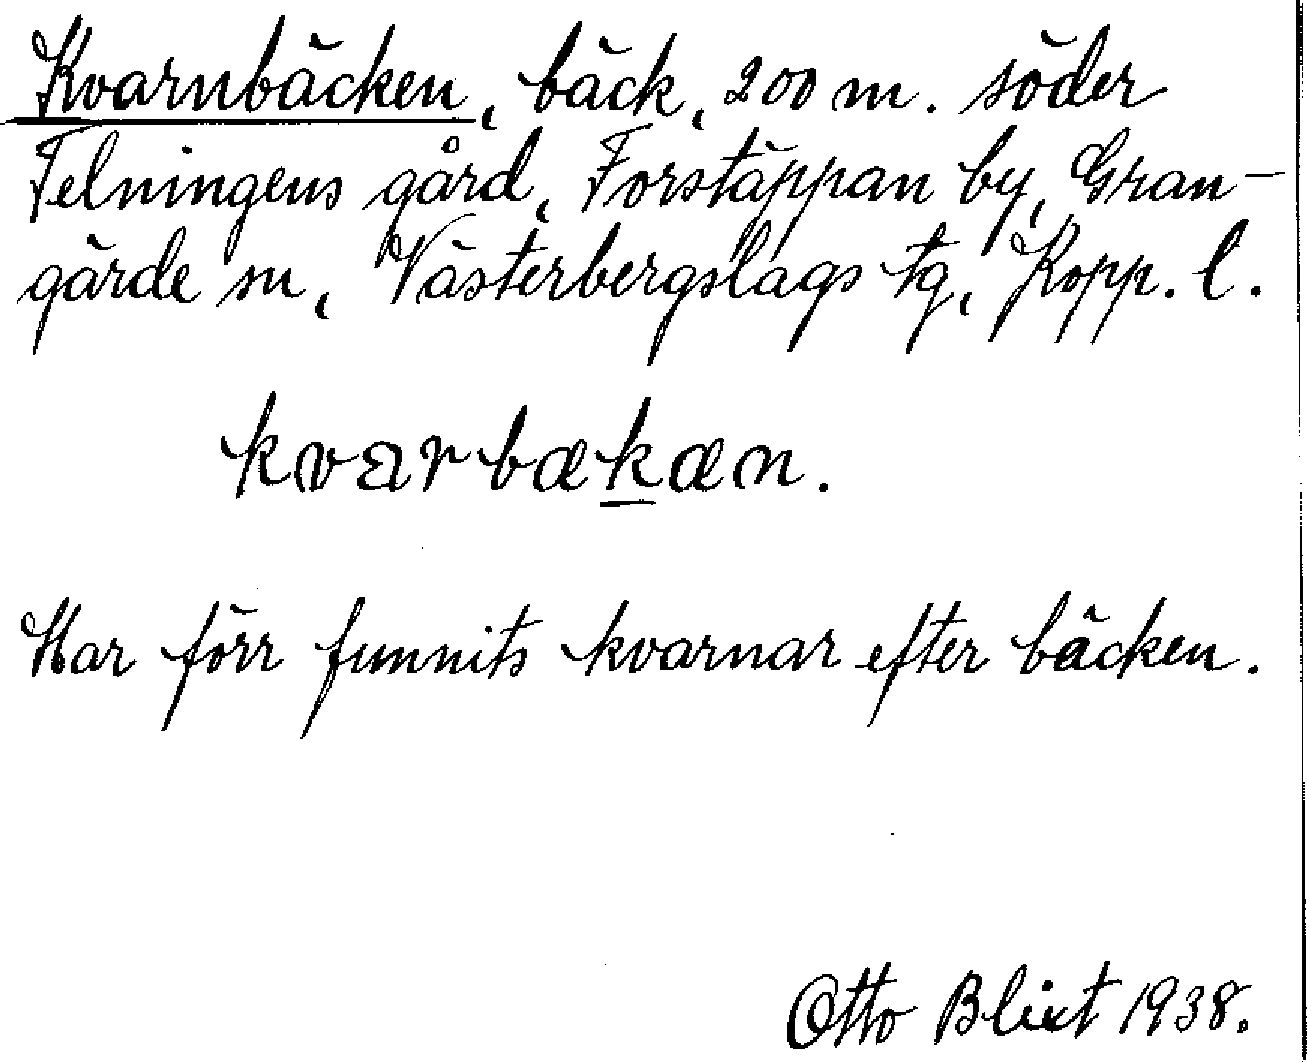 Kvarnbäcken, bäck, 200 m. söder
Felningens gård, Forstäppan by, Gran-
gärde sn, Västerbergslags tg, Kopp. l.
kvarbækæn.
Har förr funnits kvarnar efter bäcken.
Otto Blixt 1938.